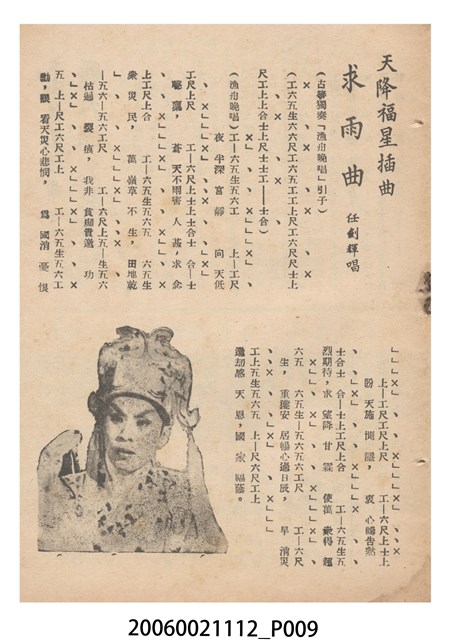 天降福星插曲
求雨曲
任劍輝唱
（古箏獨奏「漁舟晚唱」引子）
（工六五生六六尺工六五工工上尺工六尺尺士上
尺工上上合士上尺士工——士合）
（漁舟晚唱）工—六五生五六工　上—工尺
夜半深宮靜　向天低
工尺上尺　工—六工尺上士上合士　合—士
蒼天不雨害人甚，求企
上工尺上合　工—六五生五六五　六五生
衆災民，萬嶺草不生，田地乾
—五六—五六工尺　工—六尺上五—生五六
枯遍裂痕，我非貪
五　上—尺工六尺工上　工—六五生五六工
動，眼看天災心悲憫，爲國消憂恨
上—工尺工尺上尺　工—六尺上士上
盼天施惻隱，衷心禱告默
士合士　合—士上工尺上合　工—六五生五
烈期待，求望降甘霖　使萬衆得超
六五　六五生—五六五六工尺　工—六尺
生，重建安居暢心過日辰，早消災
工上五生五六五　上—尺六尺工上
天恩，國家福蔭。
20060021112_P009